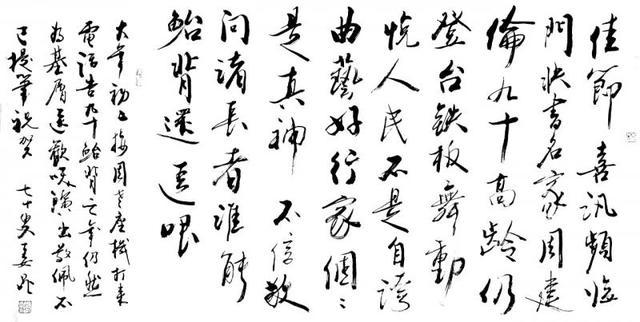 佳節 喜訊頻臨
門快書名家周建
倫九十高齡仍
登台铁板舞動
悦人民不是自誇
曲藝好行家個々
是真神 不信敬
問諸長者誰能
鮐背還逗哏
大年初二接周老座機打来
電話告九十鮐背之年仍然
為基層送歡笑演出敬佩不
已提筆祝贺 七十叟姜昆